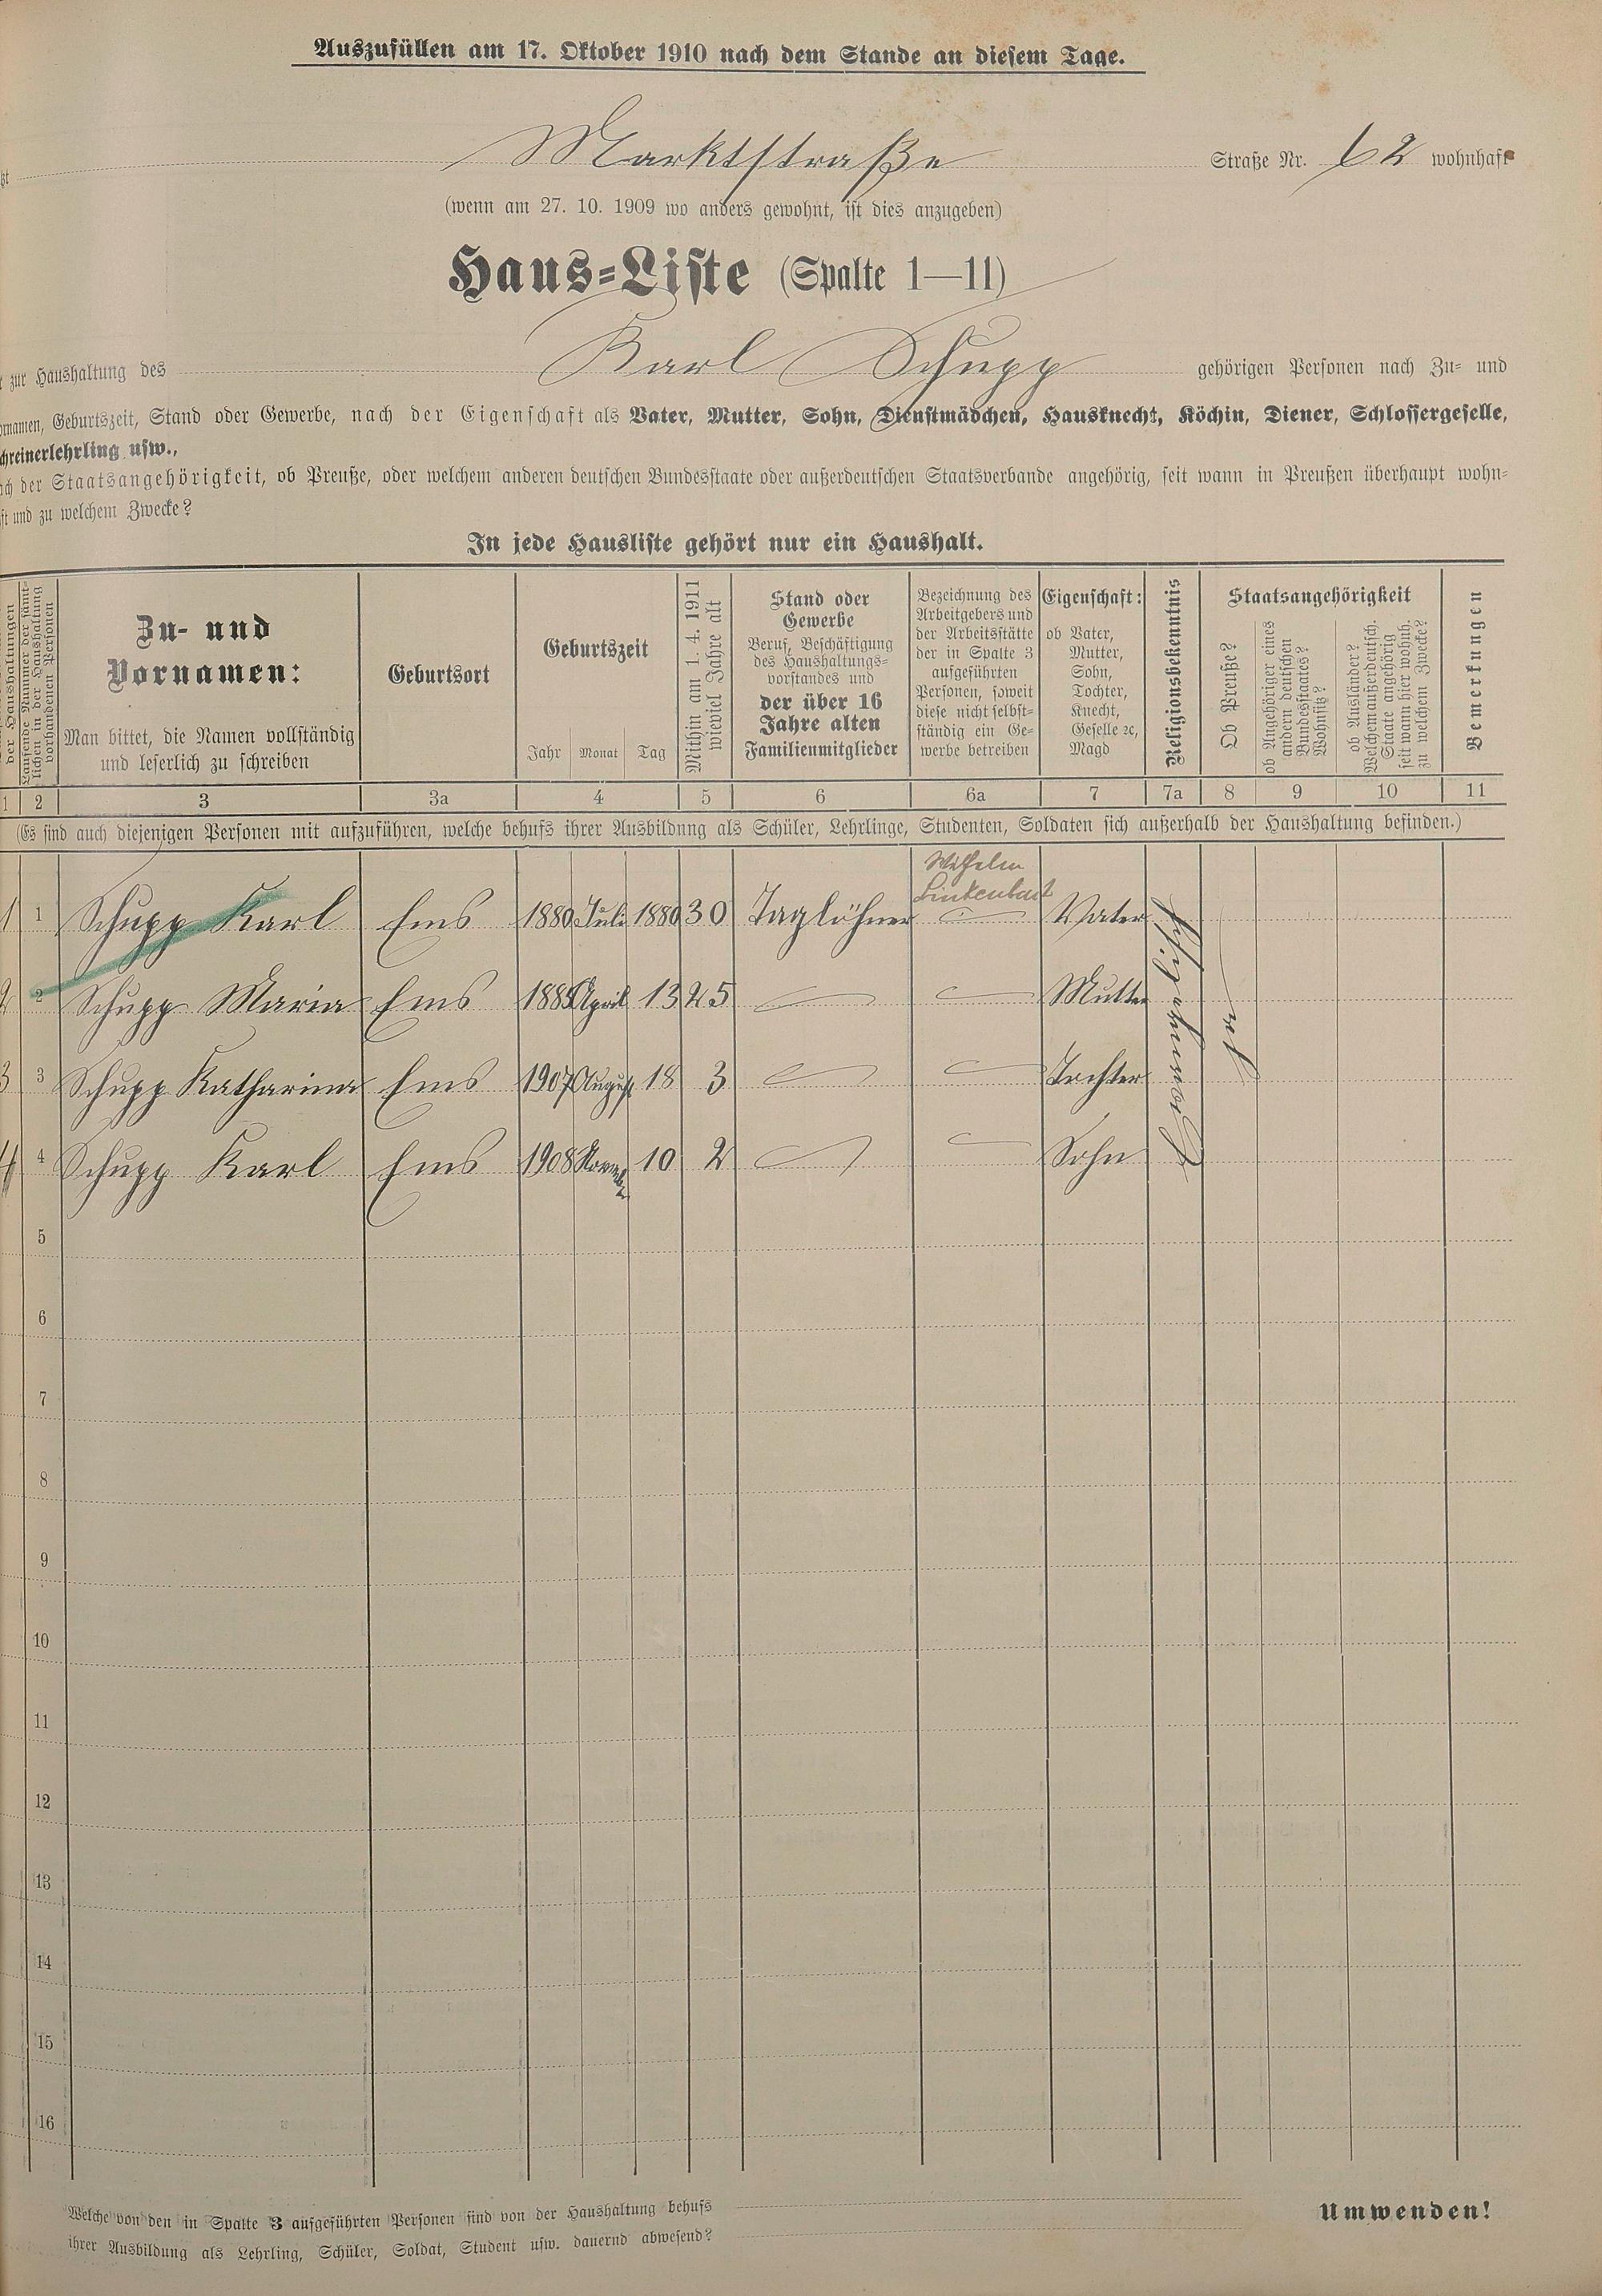 Auszufüllen am 17. Oktober 1910 nach dem Stande an diesem Tage.
Marktstraße Straße Nr. 62 wohnhaft
(wenn am 27. 10. 1909 wo anders gewohnt, ist dies anzugeben)
Haus-Liste (Spalte 1—11)
zur Haushaltung des Karl Schupp gehörigen Personen nach Zu- und
Geburtszeit, Stand oder Gewerbe, nach der Eigenschaft als Vater, Mutter, Sohn, Dienstmädchen, Hausknecht, Köchin, Diener, Schlossergeselle,
chreinerlehrling usw.,
der Staatsangehörigkeit, ob Preuße, oder welchem anderen deutschen Bundesstaate oder außerdeutschen Staatsverbande angehörig, seit wann in Preußen überhaupt wohn-
und zu welchem Zwecke?
In jede Hausliste gehört nur ein Haushalt.
der Haushaltungen
Laufende Nummer der sämt-
lichen in der Haushaltung
vorhandenen Personen
Zu- und
Vornamen:
Man bittet, die Namen vollständig
und leserlich zu schreiben
Geburtsort
Geburtszeit
Jahr Monat Tag
Mithin am 1. 4. 1911
wieviel Jahre alt
Stand oder
Gewerbe
Beruf, Beschäftigung
des Haushaltungs-
vorstandes und
der über 16
Jahre alten
Familienmitglieder
Bezeichnung des
Arbeitgebers und
der Arbeitsstätte
der in Spalte 3
aufgeführten
Personen, soweit
diese nicht selbst-
ständig ein Ge-
werbe betreiben
Eigenschaft:
ob Vater,
Mutter,
Sohn,
Tochter,
Knecht,
Geselle ꝛc,
Magd
Religionsbekenntnis
Staatsangehörigkeit
Ob Preuße?
ob Angehöriger eines
andern deutschen
Bundesstaates?
Wohnsitz?
ob Ausländer?
Welchem außerdeutsch.
Staate angehörig
seit wann hier wohnh.
zu welchem Zwecke?
Bemerkungen
1 2 3 3a 4 5 6 6a 7 7a 8 9 10 11
(Es sind auch diejenigen Personen mit aufzuführen, welche behufs ihrer Ausbildung als Schüler, Lehrlinge, Studenten, Soldaten sich außerhalb der Haushaltung befinden.)
Wilhelm
Linkenbach
1 1 Schupp Karl Ems 1880 Juli 1880 30 Taglöhner Vater
2 2 Schupp Maria Ems 1885 April 13 25 Mutter
3 3 Schupp Katharina Ems 1907 August 18 3 Tochter
4 4 Schupp Karl Ems 1908 November 10 2 Sohn
5
6
7
8
9
10
11
12
13
14
15
16
Welche von den in Spalte 3 aufgeführten Personen sind von der Haushaltung behufs
ihrer Ausbildung als Lehrling, Schüler, Soldat, Student usw. dauernd abwesend?
Umwenden!